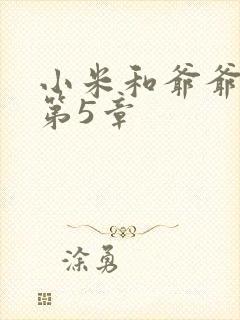 小米和爷爷
第5章
涂勇